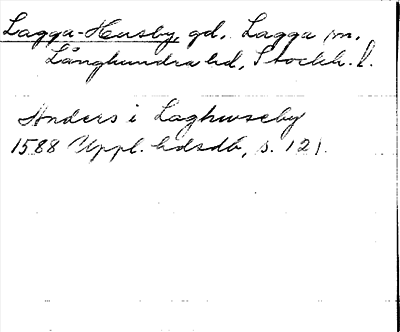 Lagga-Husby, gd, Lagga sn,
Långhundra hd, Stockh. l.
Anders i Laghwseby
1588 Uppl. hdsdb, s. 121.